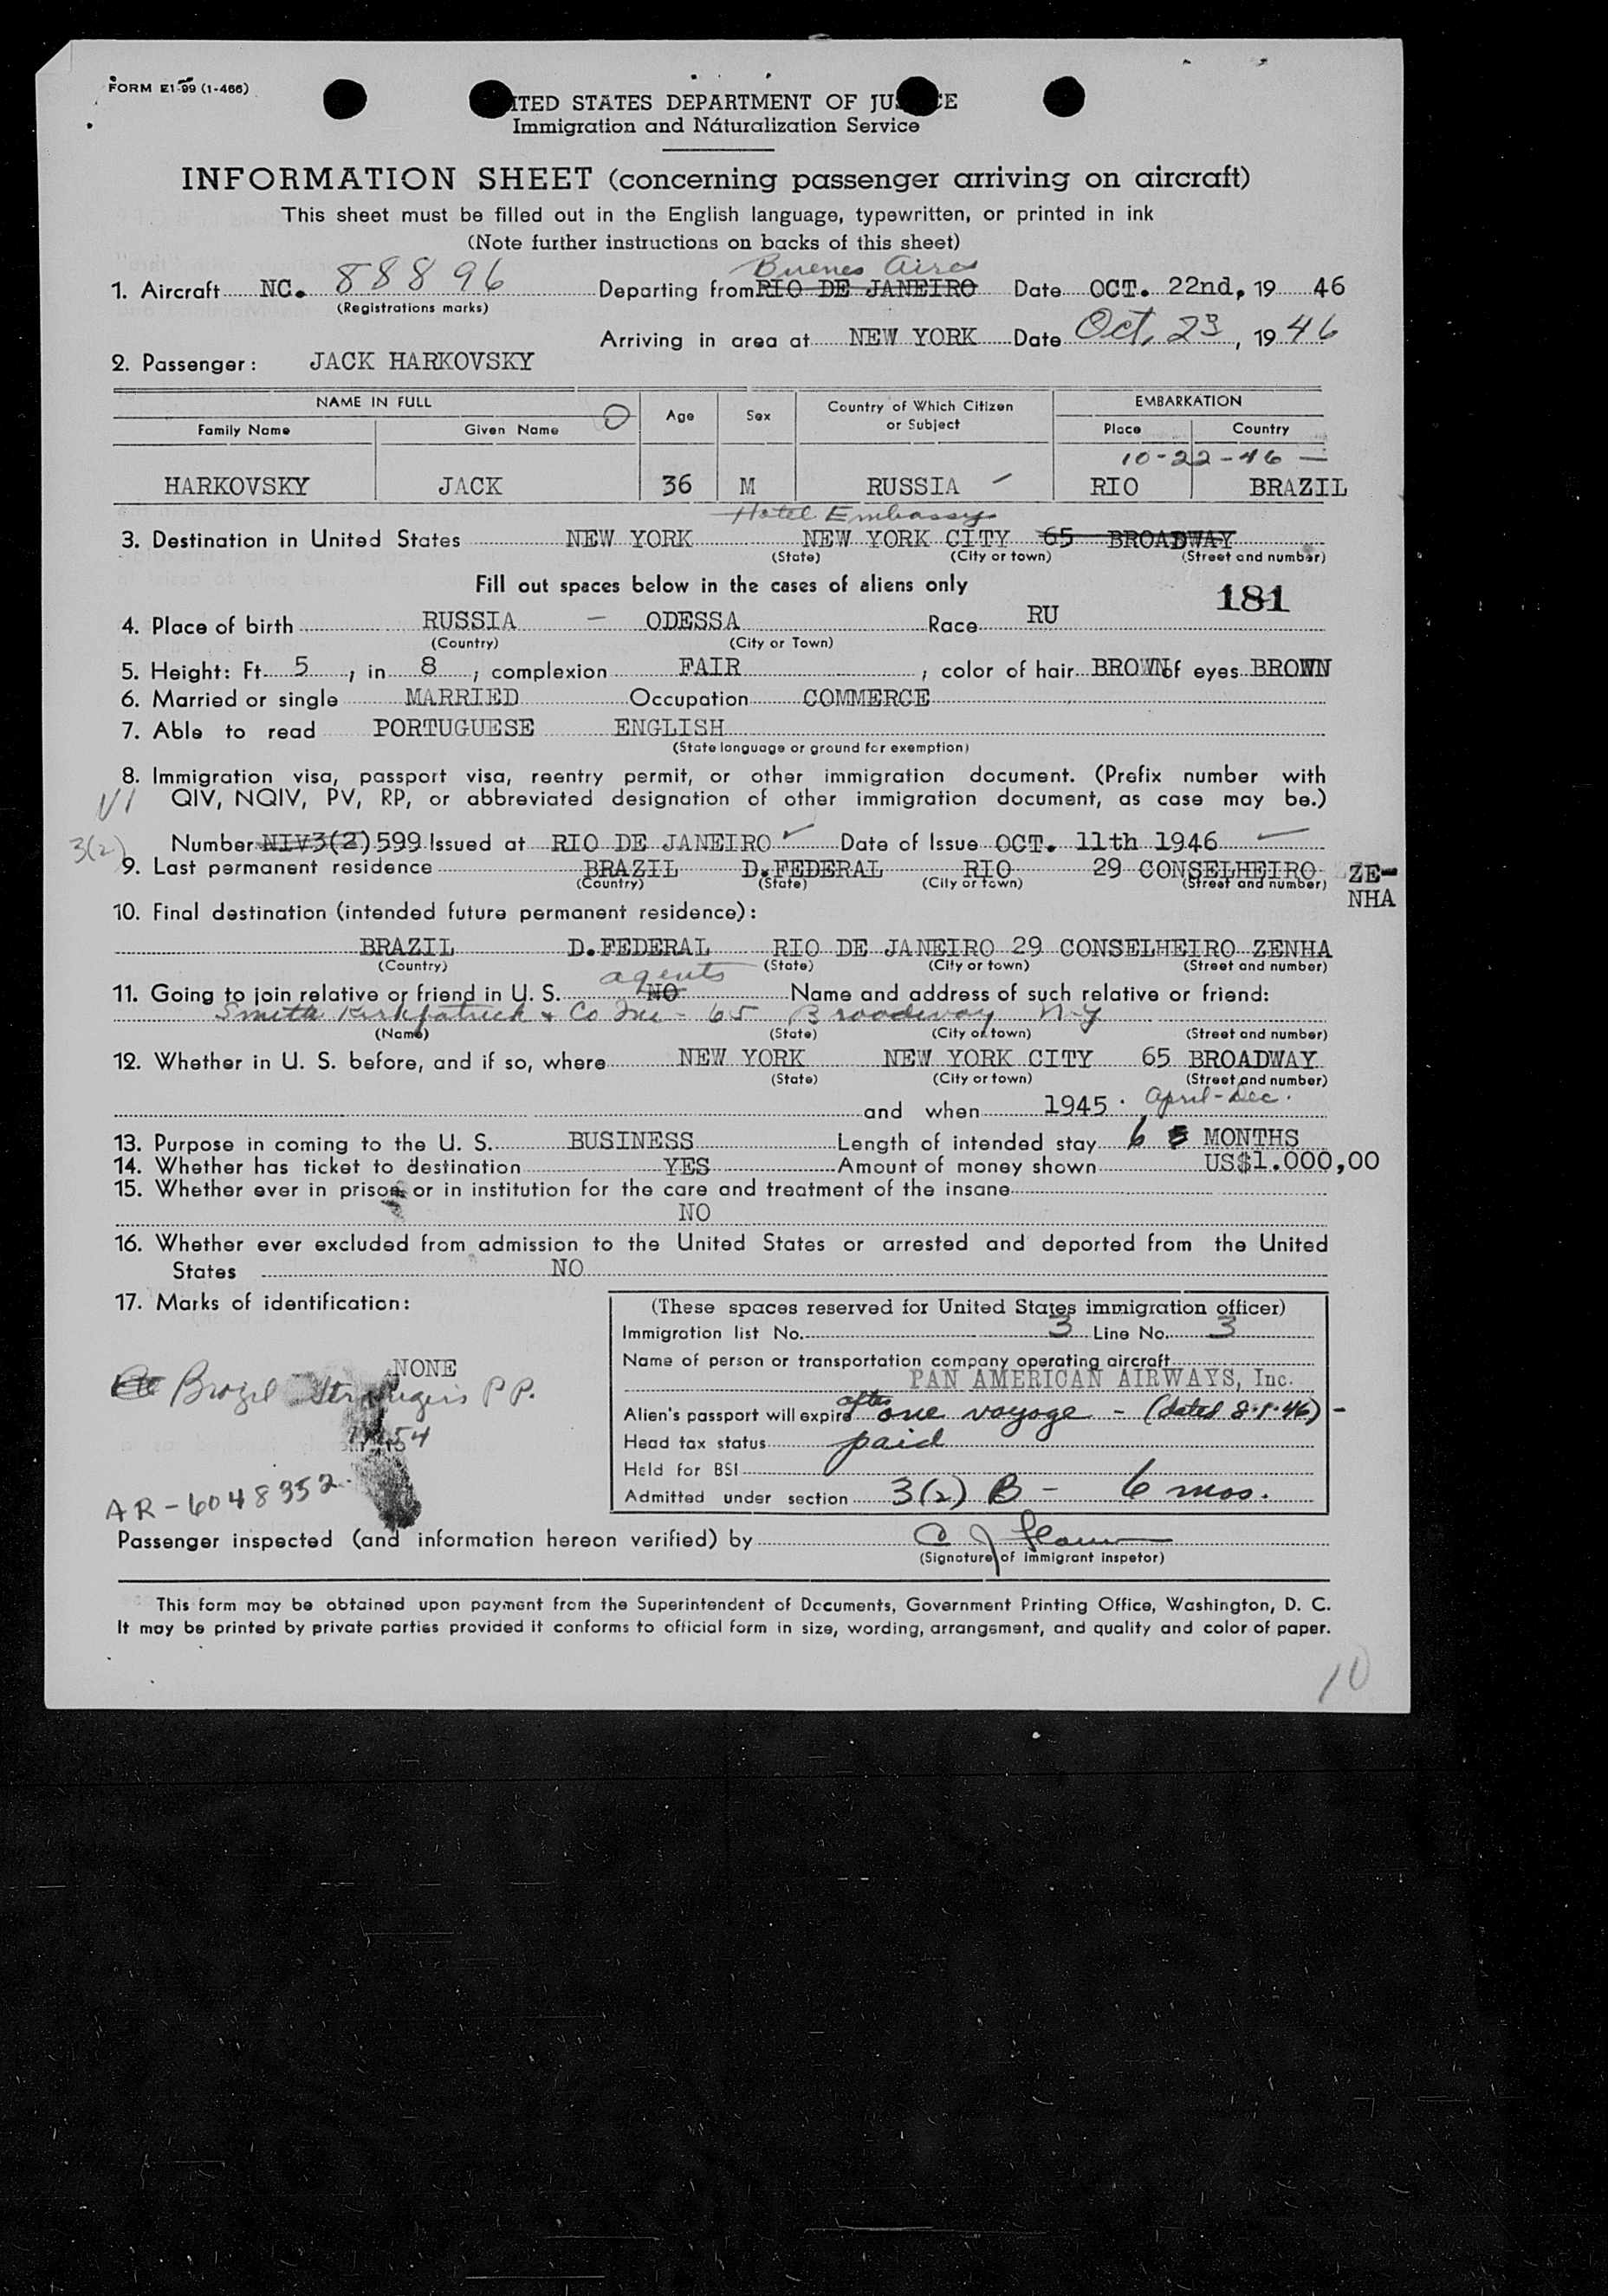 FORM EI-99 (1-466)
ITED STATES DEPARTMENT OF JUS CE
Immigration and Naturalization Service
INFORMATION SHEET (concerning passenger arriving on aircraft)
This sheet must be filled out in the English language, typewritten, or printed in ink
(Note further instructions on backs of this sheet)
Buenos Aires
1. Aircraft NC. 88896 Departing from RIO DE JANEIRO Date OCT. 22nd, 19 46
(Registrations marks)
Arriving in area at NEW YORK Date Oct, 23, 19 46
2. Passenger: JACK HARKOVSKY
NAME IN FULL Age Sex Country of Which Citizen or Subject EMBARKATION
Family Name Given Name Place Country
10-22-46 —
HARKOVSKY JACK 36 M RUSSIA RIO BRAZIL
Hotel Embassy
3. Destination in United States NEW YORK NEW YORK CITY 65 BROADWAY
(State) (City or town) (Street and number)
Fill out spaces below in the cases of aliens only
181
4. Place of birth RUSSIA — ODESSA Race RU
(Country) (City or Town)
5. Height: Ft. 5, in 8; complexion FAIR; color of hair BROWN of eyes BROWN
6. Married or single MARRIED Occupation COMMERCE
7. Able to read PORTUGUESE ENGLISH
(State language or ground for exemption)
8. Immigration visa, passport visa, reentry permit, or other immigration document. (Prefix number with
VI QIV, NQIV, PV, RP, or abbreviated designation of other immigration document, as case may be.)
3(2) Number NIV3(2)599 Issued at RIO DE JANEIRO Date of Issue OCT. 11th 1946
9. Last permanent residence BRAZIL D.FEDERAL RIO 29 CONSELHEIRO ZE-
NHA
(Country) (State) (City or town) (Street and number)
10. Final destination (intended future permanent residence):
BRAZIL D.FEDERAL RIO DE JANEIRO 29 CONSELHEIRO ZENHA
(Country) (State) (City or town) (Street and number)
agents
11. Going to join relative or friend in U. S. NO Name and address of such relative or friend:
Smith Kirkpatrick & Co Inc - 65 Broadway NY
(Name) (State) (City or town) (Street and number)
12. Whether in U. S. before, and if so, where NEW YORK NEW YORK CITY 65 BROADWAY
(State) (City or town) (Street and number)
and when 1945 · April-Dec.
13. Purpose in coming to the U. S. BUSINESS Length of intended stay 6 MONTHS
14. Whether has ticket to destination YES Amount of money shown US$1.000,00
15. Whether ever in prison or in institution for the care and treatment of the insane
NO
16. Whether ever excluded from admission to the United States or arrested and deported from the United
States NO
17. Marks of identification:
NONE
Brazil Strangers P P.
AR-6048352
(These spaces reserved for United States immigration officer)
Immigration list No. 3 Line No. 3
Name of person or transportation company operating aircraft
PAN AMERICAN AIRWAYS, Inc.
Alien's passport will expire after one voyage - (dated 8.1.46) -
Head tax status paid
Held for BSI
Admitted under section 3(2) B - 6 mos.
Passenger inspected (and information hereon verified) by
(Signature of Immigrant inspetor)
This form may be obtained upon payment from the Superintendent of Documents, Government Printing Office, Washington, D. C.
It may be printed by private parties provided it conforms to official form in size, wording, arrangement, and quality and color of paper.
10